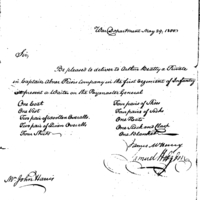 War Department May 29, 1800
Sir,
Be pleased to deliver to Arthur a Private
in Captain Company in the first regiment of Infantry
at present a Waiter on the Paymaster General
One Coat
One Vest
Four pair of Woollen Overalls
Four pair of Linen Overalls
Four Shirts
Four pairs of Shoes
Four pairs of Socks
One Hat
One Stock and Clasp
One Blanket
James McHenry
Samuel Hodgdon
Mr John Harris